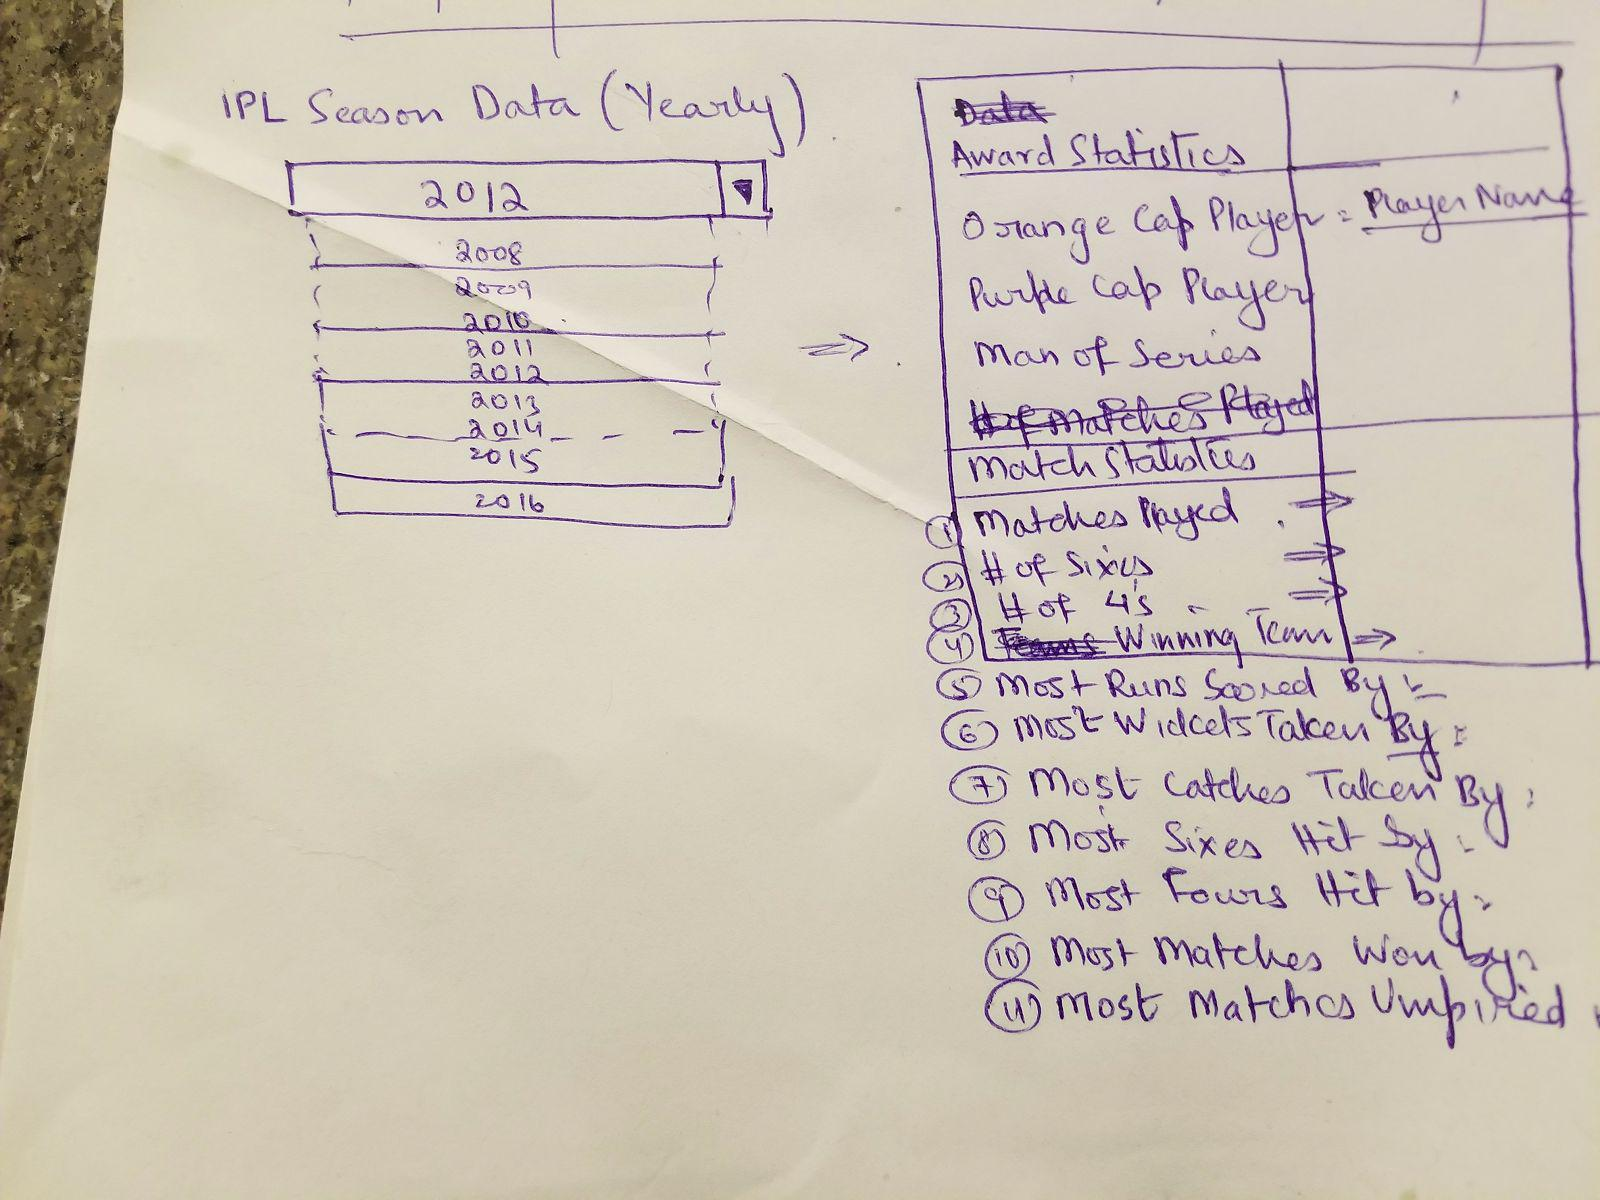 IPL Season Data (Yearly)
2012
2008
2009
2010
2011
2012
2013
2014
2015
2016
Data
Award Statistics
Orange Cap Player = Player Name
Purple Cap Player
Man of Series
# of Matches Played
Match Statistics
① Matches Played
② # of Sixes
③ # of 4's
④ Teams Winning Team
⑤ Most Runs Scored By :-
⑥ Most Wickets Taken By :
⑦ Most Catches Taken By :
⑧ Most Sixes Hit by :
⑨ Most Fours Hit by :
⑩ Most Matches Won by :
⑪ Most Matches Umpired